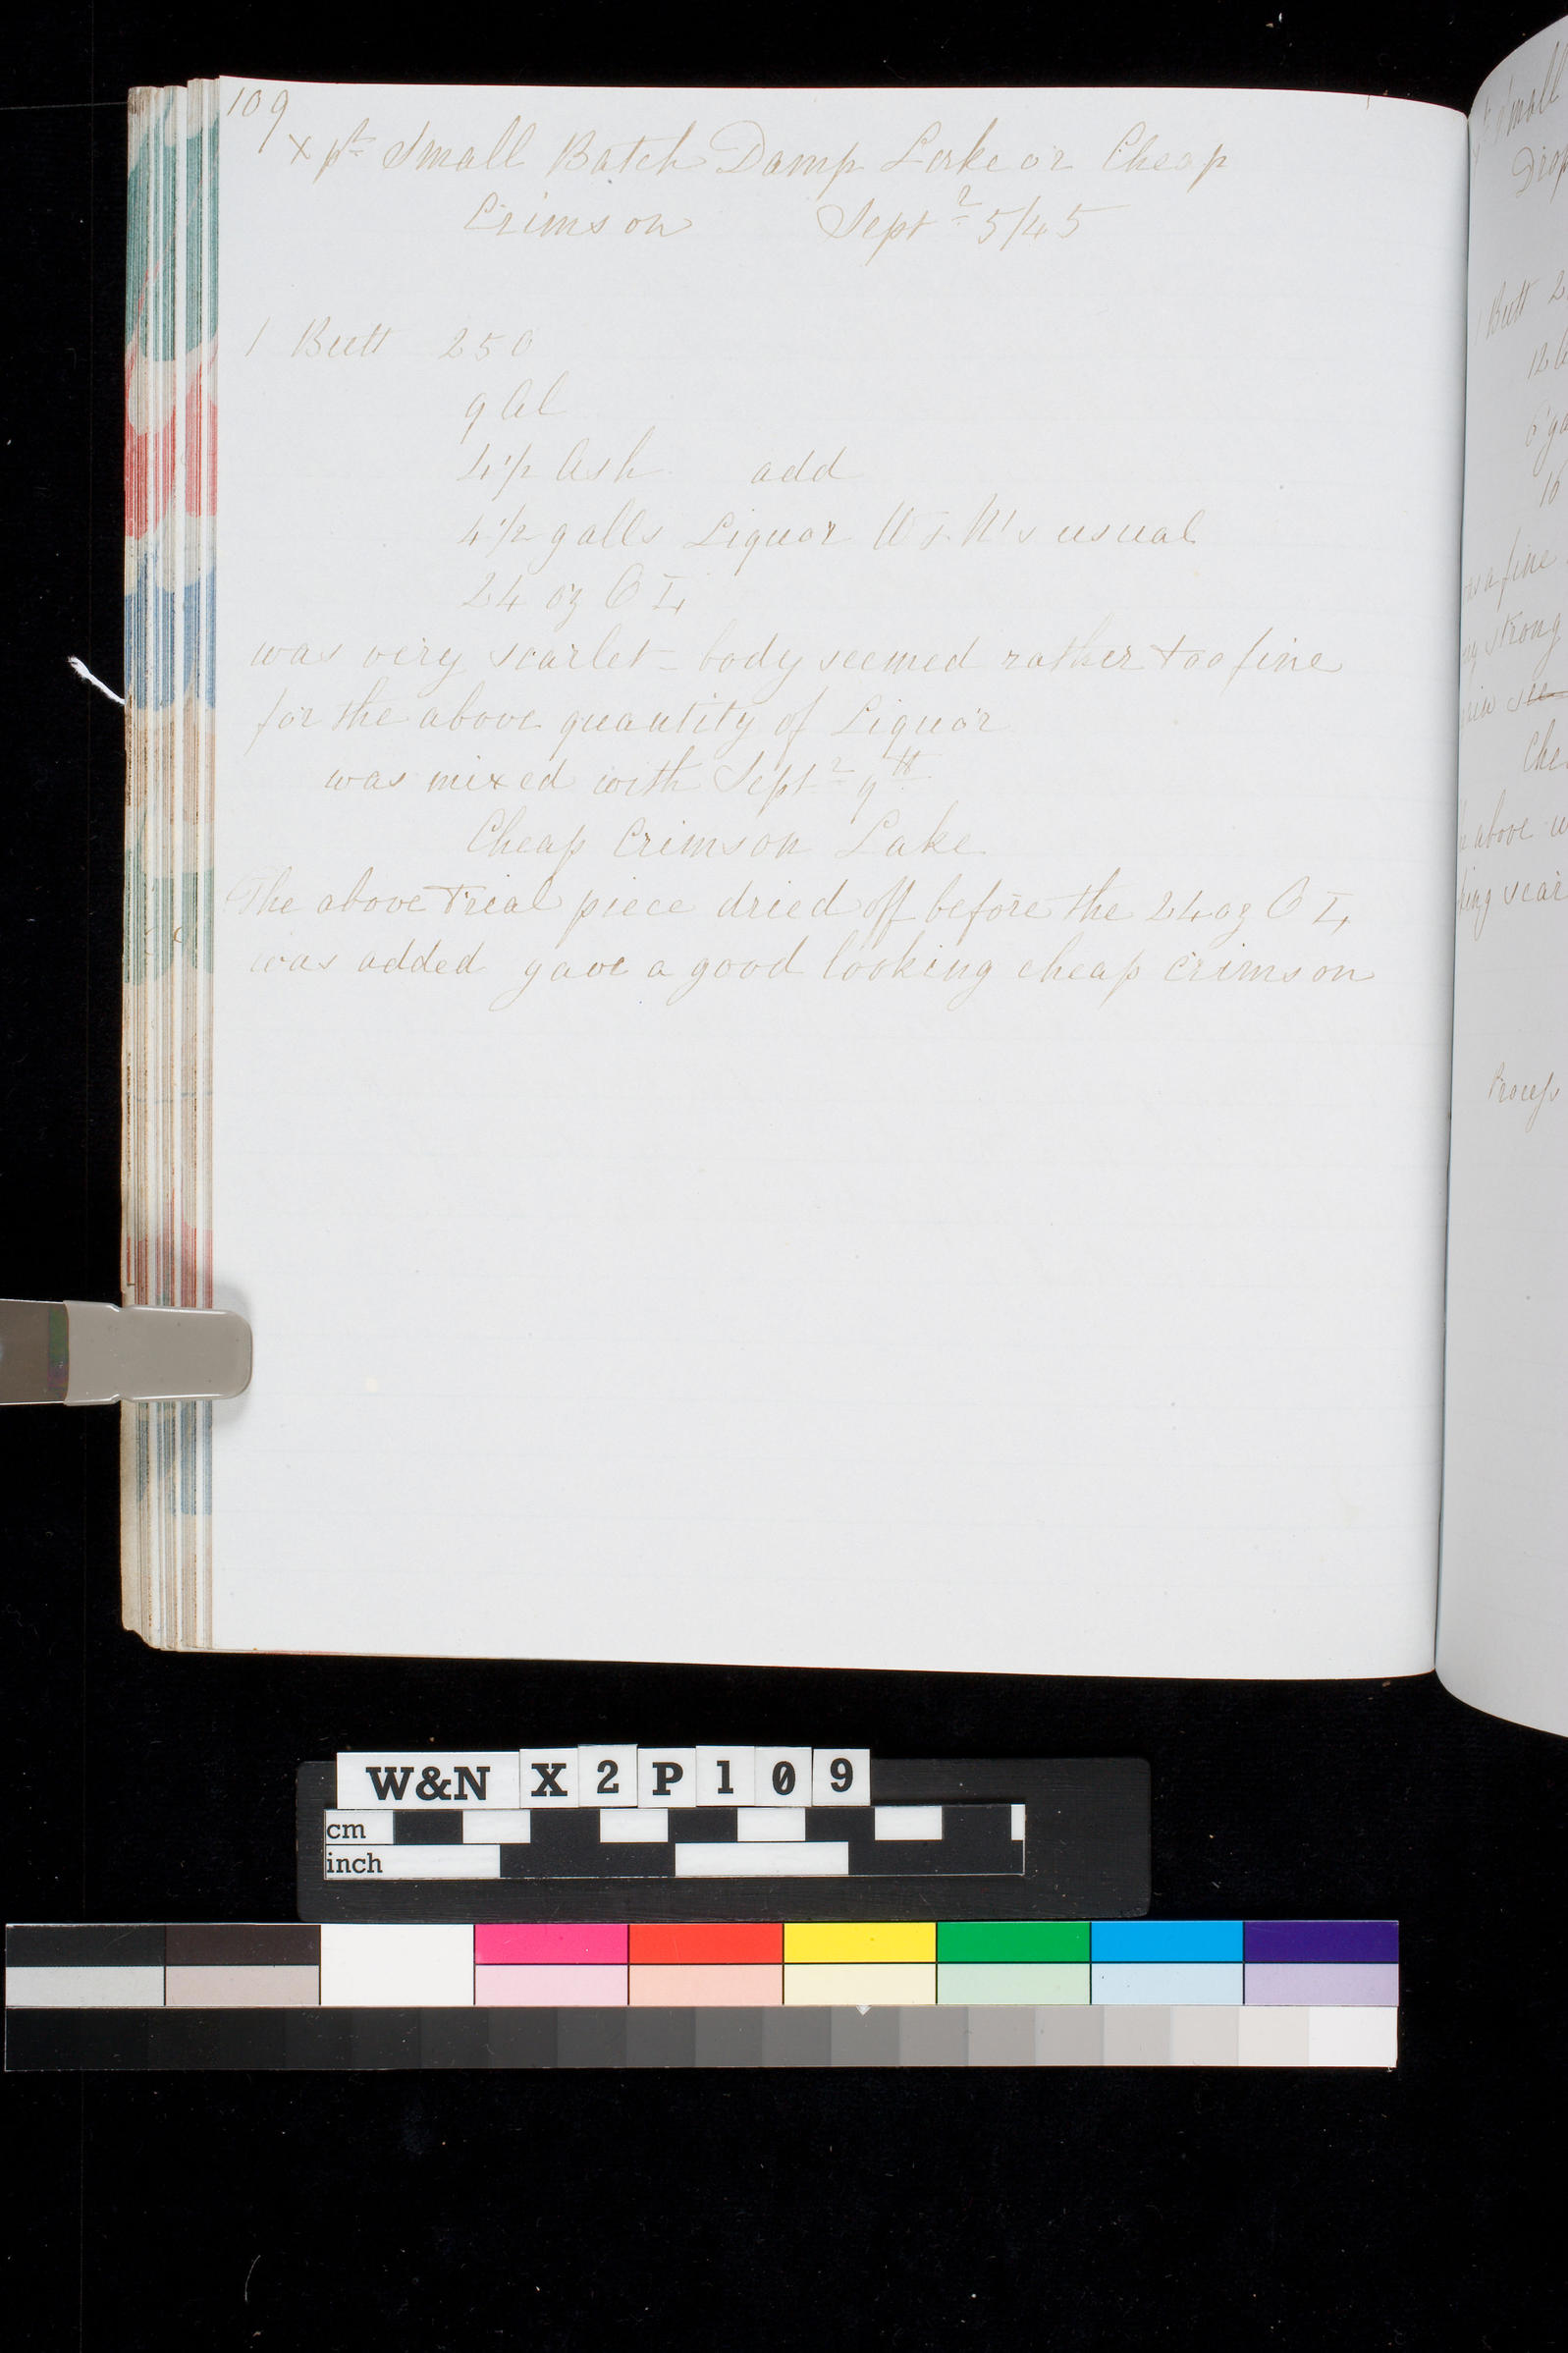 109
xpt Small Batch Damp Lake or Cheap
Crimson Septr 5/45
1 Butt 250
9 Al
4 1/2 Ash add
4 1/2 galls Liquor W & N's usual
24 oz O L
was very scarlet - body seemed rather too fine
for the above quantity of Liquor
was mixed with Septr 9th
Cheap Crimson Lake
The above Trial piece dried off before the 24 oz O L
was added gave a good looking cheap crimson
Small
Butt 2
as a fine
strong
Che
above w
king scar
Process
W&N X2P109
cm
inch